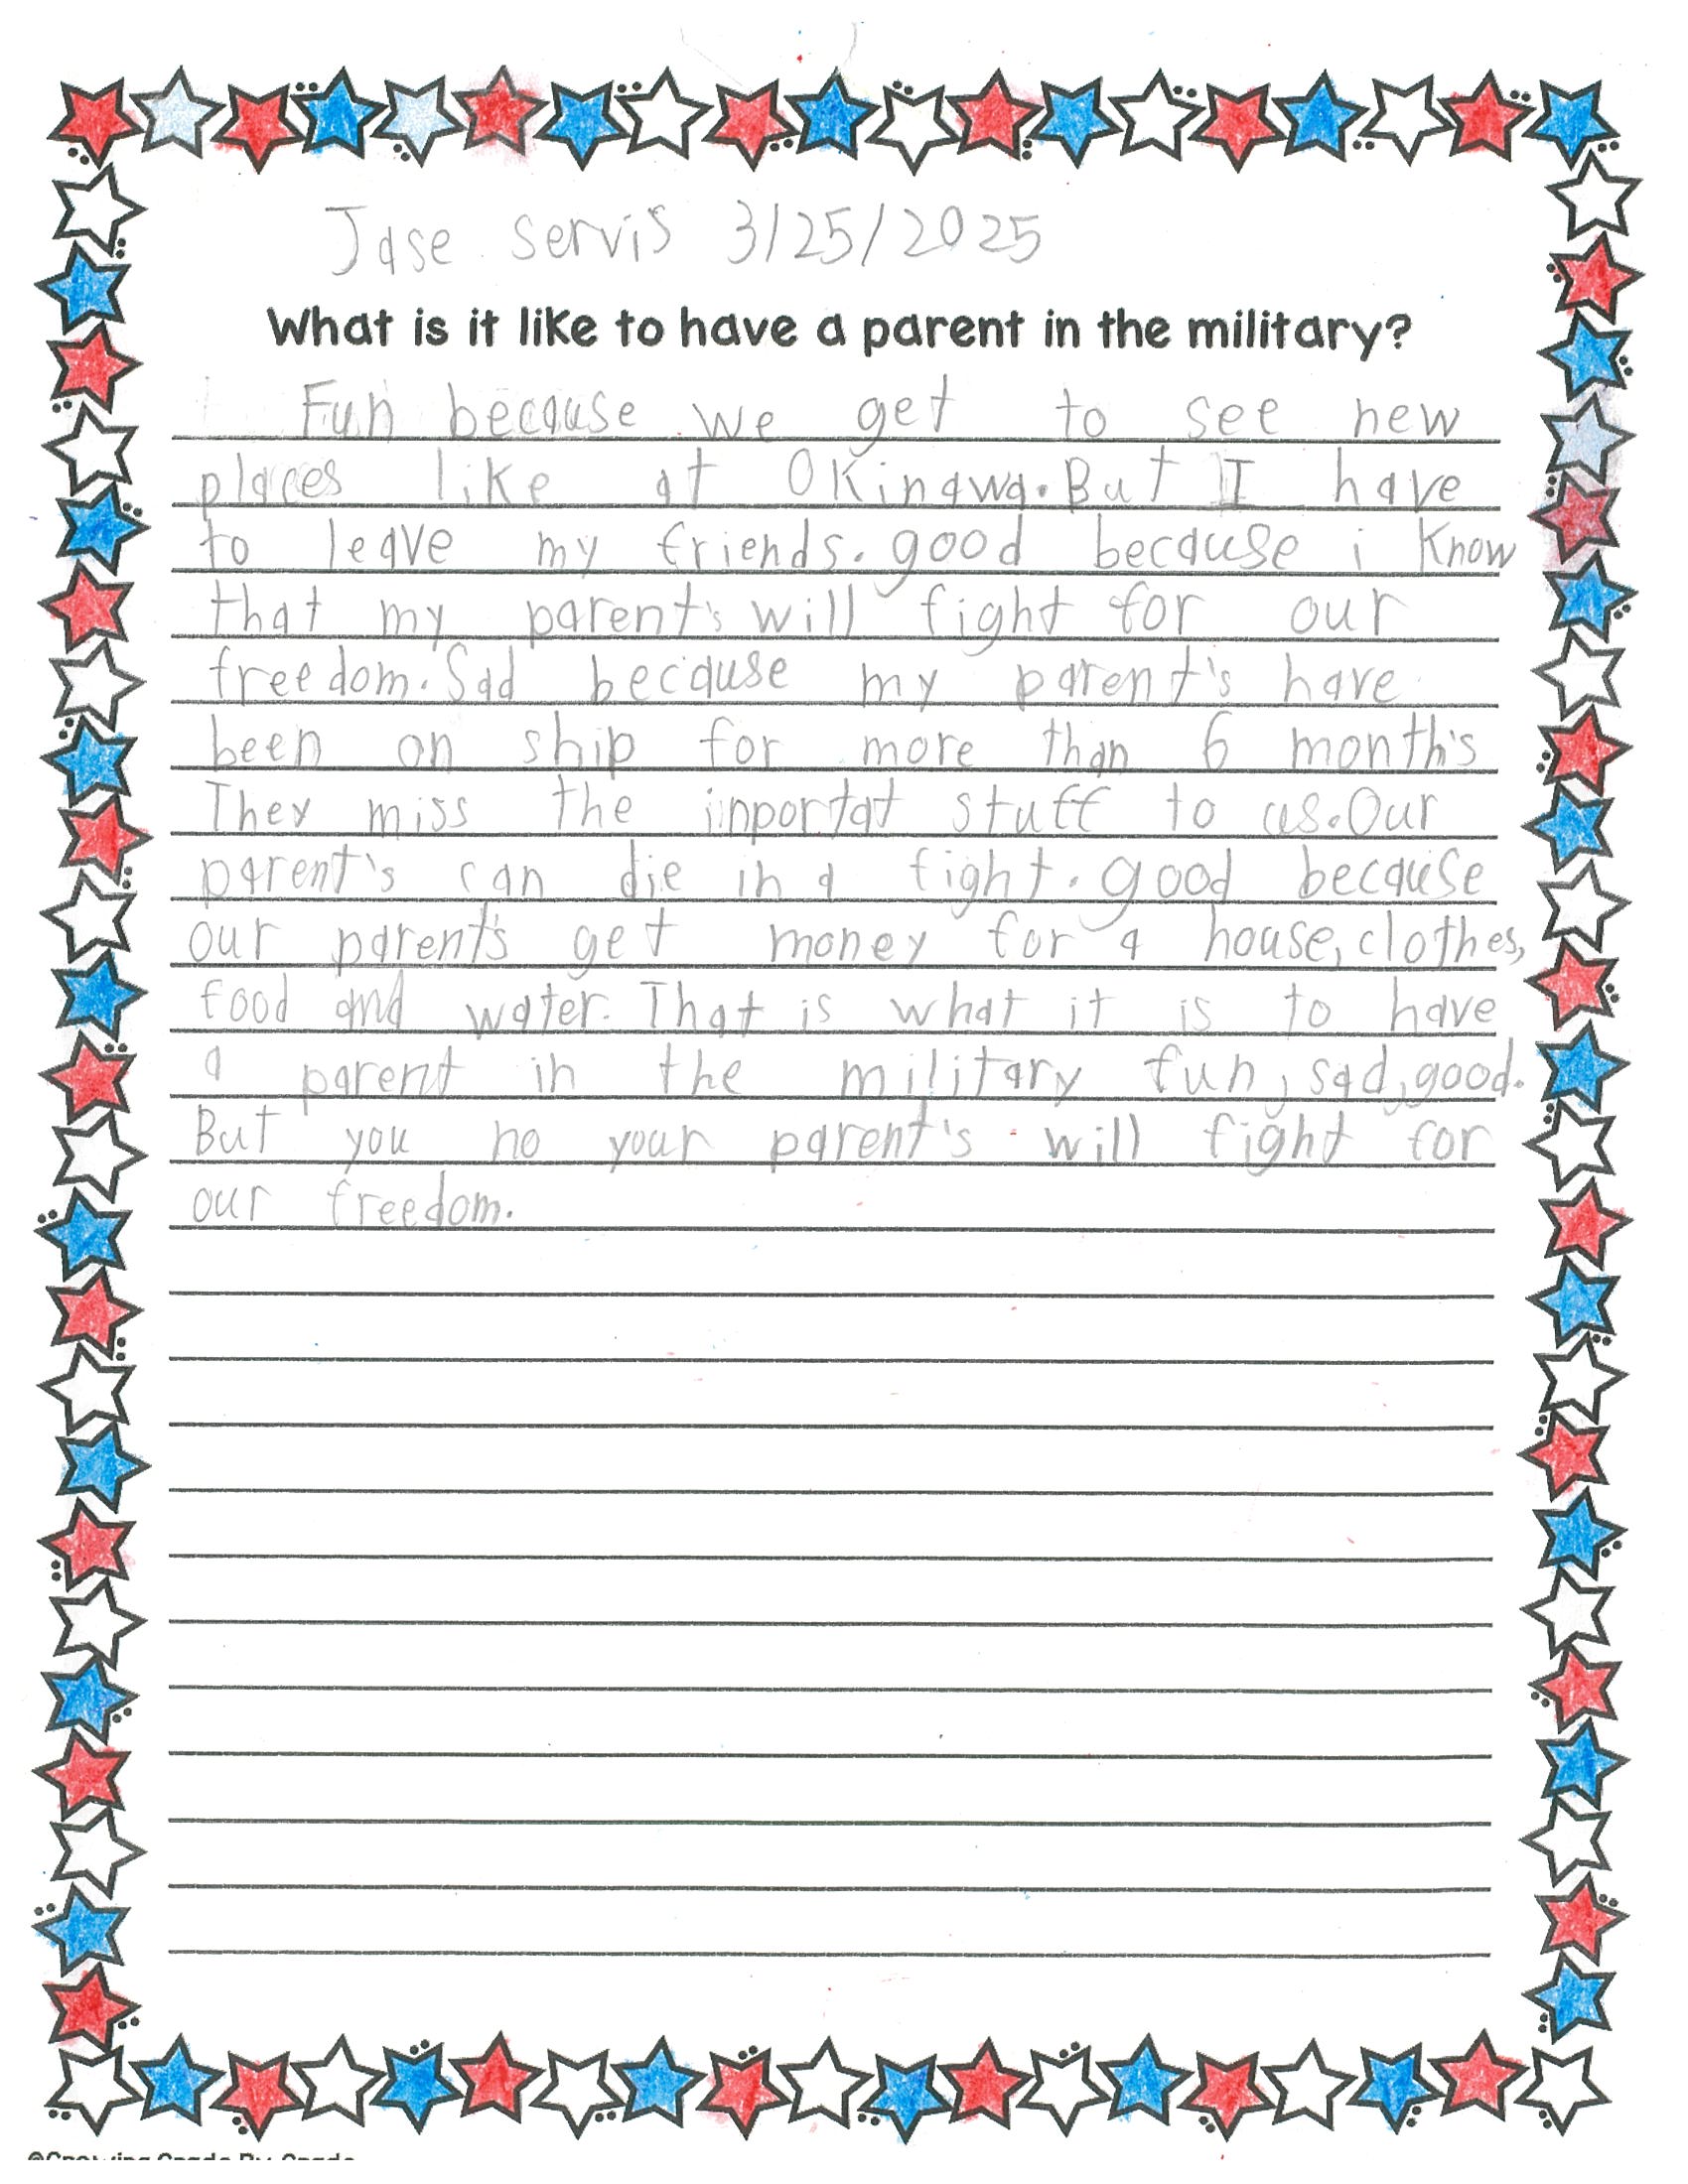 Jase servis 3/25/2025
What is it like to have a parent in the military?
Fun because we get to see new
places like at Okinawa. But I have
to leave my friends. good because i know
that my parent's will fight for our
freedom. Sad because my parent's have
been on ship for more than 6 month's
They miss the inportat stuff to us. Our
parent's can die in a fight. good because
our parent's get money for a house, clothes,
food and water. That is what it is to have
a parent in the military fun, sad, good.
But you no your parent's will fight for
our freedom.
©Growing Grade By Grade